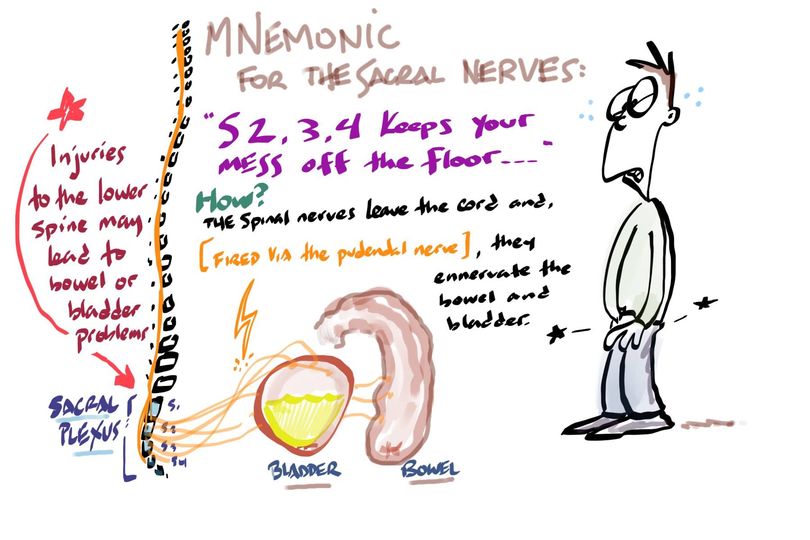 MNEMONIC
FOR THE SACRAL NERVES:
"S2,3,4 Keeps your
MESS off the floor..."
How?
THE Spinal nerves leave the cord and,
[FIRED VIA the pudendal nerve], they
ennervate the
bowel and
bladder.
Injuries
to the lower
spine may
lead to
bowel or
bladder
problems
SACRAL
PLEXUS:
S1
S2
S3
S4
BLADDER
BOWEL